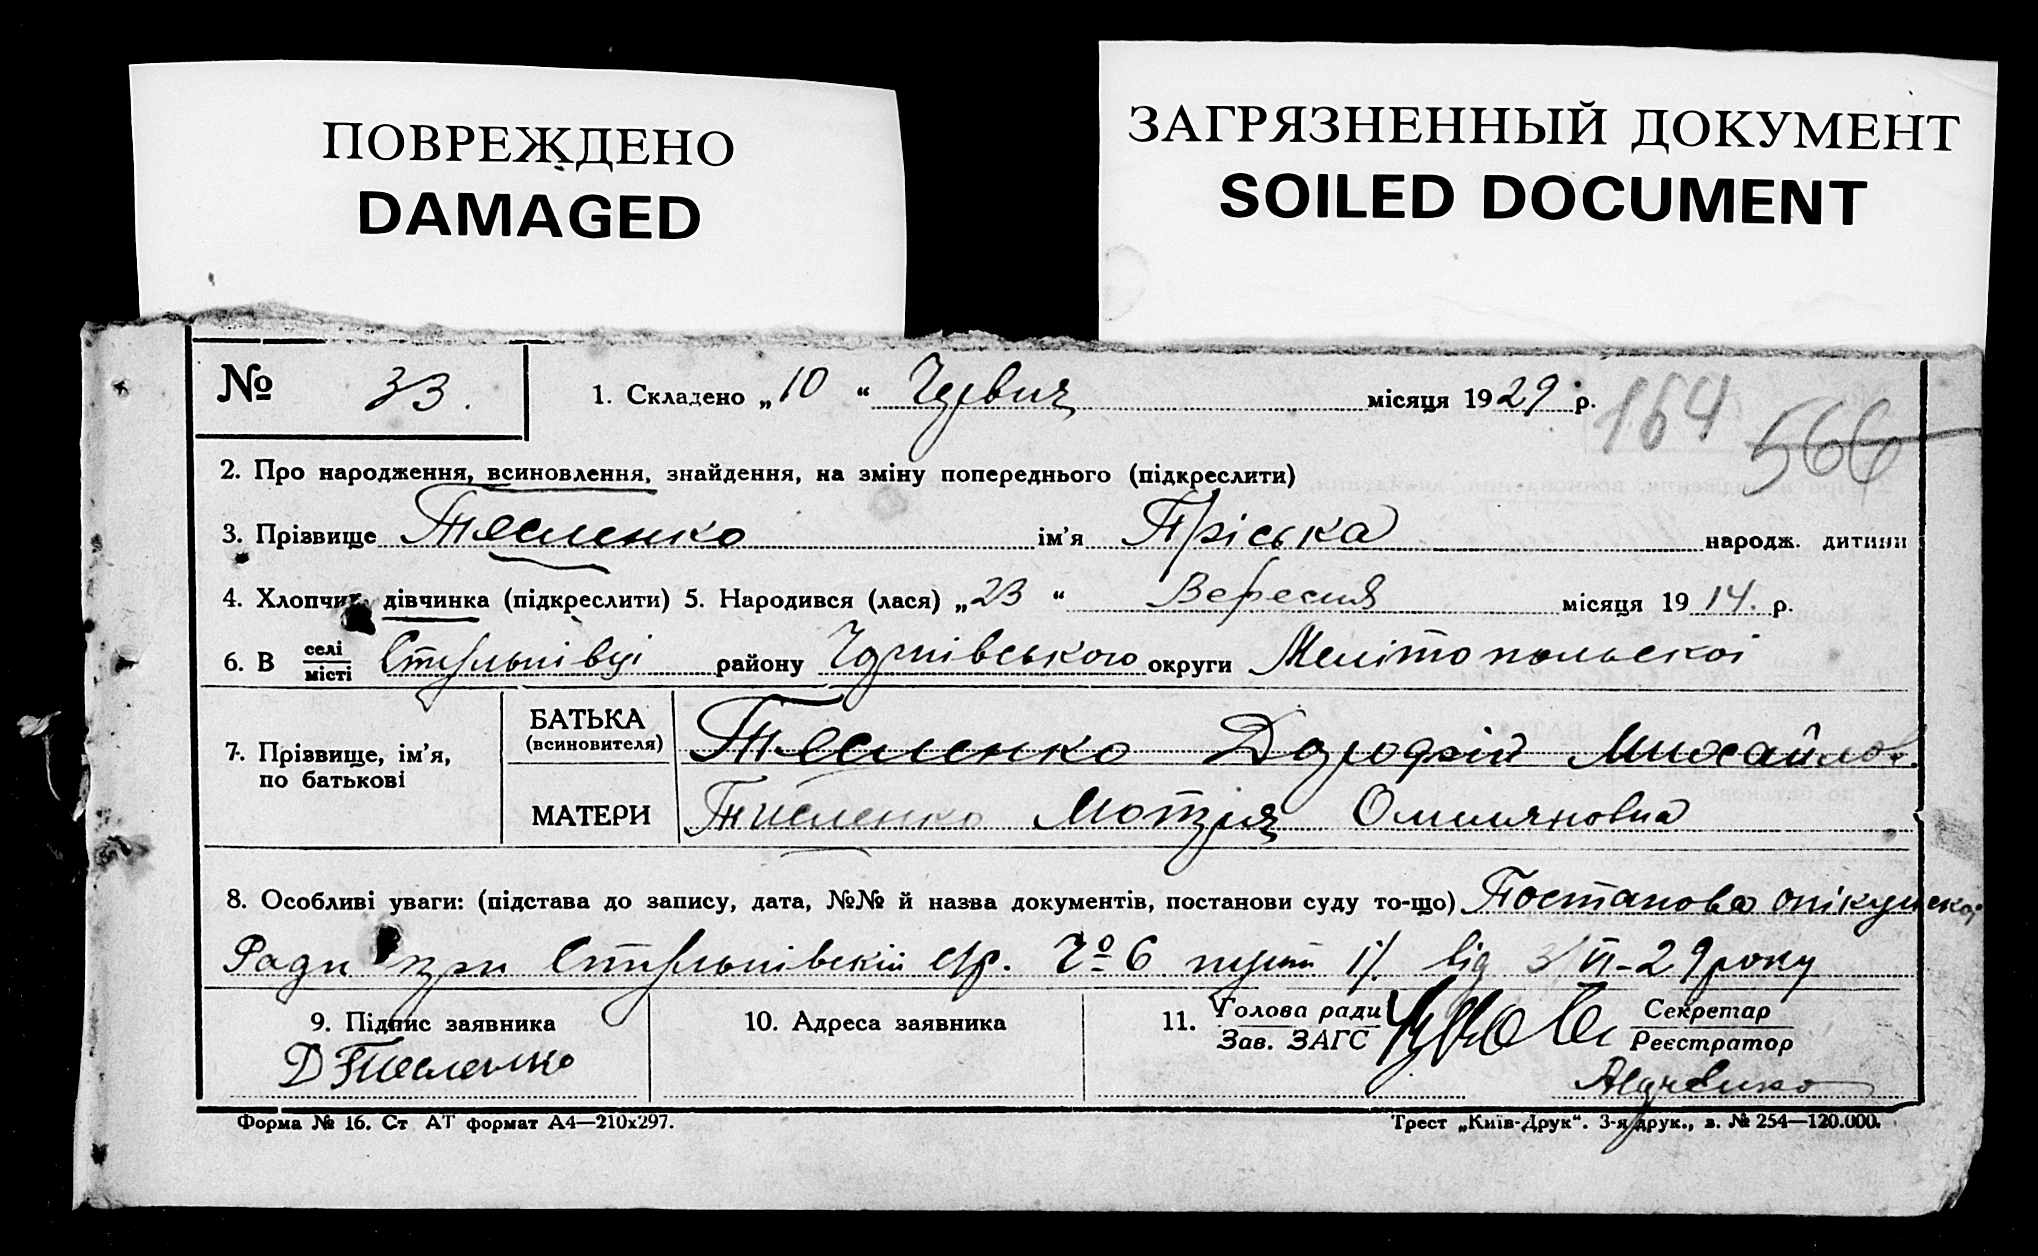 ПОВРЕЖДЕНО
DAMAGED
ЗАГРЯЗНЕННЫЙ ДОКУМЕНТ
SOILED DOCUMENT
№ 33. 1. Складено „10“ Червня місяця 1929 р. 164 566
2. Про народження, всиновлення, знайдення, на зміну попереднього (підкреслити)
3. Прізвище Тесленко ім'я Пріська народж. дитини
4. Хлопчик, дівчинка (підкреслити) 5. Народився (лася) „23“ Вересня місяця 1914. р.
6. В селі місті району округи Мелітопольскої
7. Прізвище, ім'я, по батькові
БАТЬКА (всиновителя) Тесленко Дорофій Михайлов.
МАТЕРИ Тисленко Мотря Омиляновна
8. Особливі уваги: (підстава до запису, дата, №№ й назва документів, постанови суду то-що) Постанова опікунської
Ради при Ч⁰ 6 пункт від 3/VI-29 року
9. Підпис заявника 10. Адреса заявника 11. Голова ради Зав. ЗАГС Секретар Реєстратор
Д Тесленко
Форма № 16. Ст АТ формат А4—210х297. Трест „Київ-Друк“. 3-я друк., з. № 254—120.000.